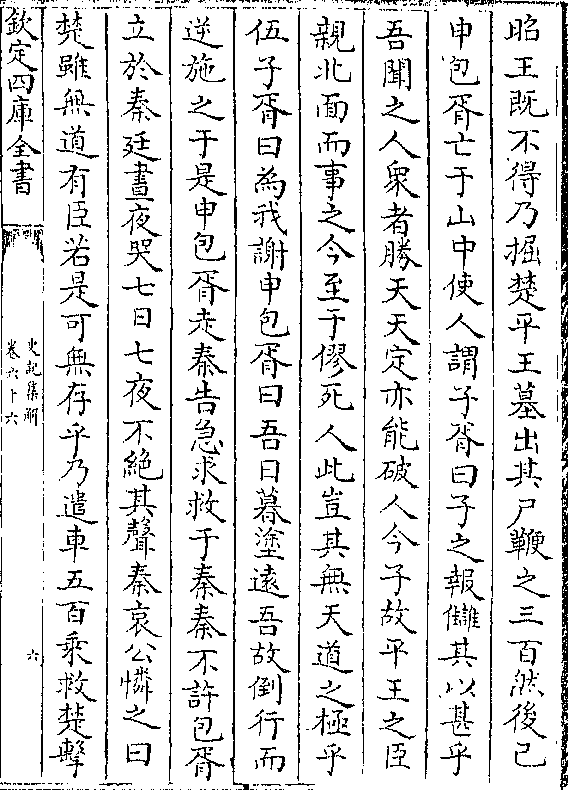 昭王既不得乃掘楚平王墓出其尸鞭之三百然後已
申包胥亡于山中使人謂子胥曰子之報讎其以甚乎
吾聞之人衆者勝天天定亦能破人今子故平王之臣
親北面而事之今至于僇死人此豈其無天道之極乎
伍子胥曰為我謝申包胥曰吾日暮塗遠吾故倒行而
逆施之于是申包胥走秦告急求救于秦秦不許包胥
立於秦廷晝夜哭七日七夜不絶其聲秦哀公憐之曰
楚雖無道有臣若是可無存乎乃遣車五百乘救楚擊
欽定四庫全書
史記集解
卷六十六
六